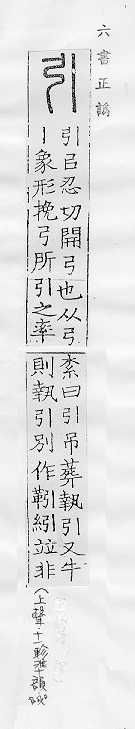 六書正譌
引
引㠯忍切開弓也从弓
丨象形挽弓所引之率
索曰引弔葬執引又牛
則執引別作靷紖竝非
(上聲·十一軫準韻